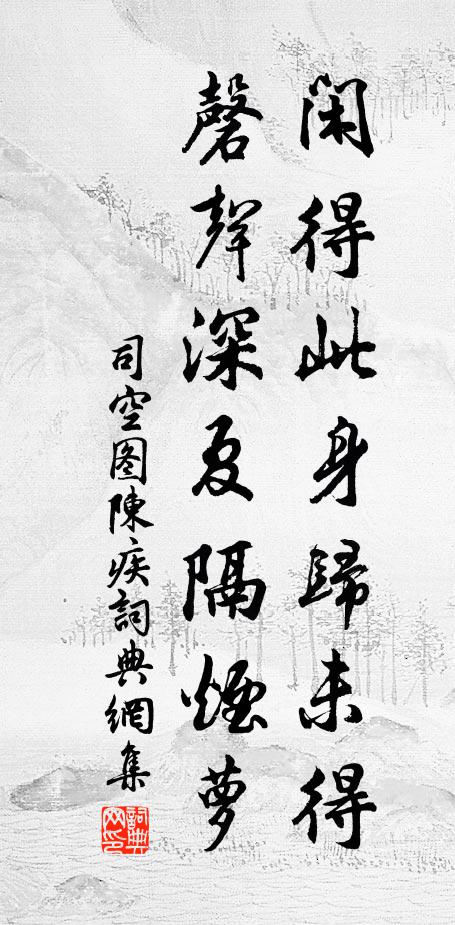 閑得此身歸未得
磬聲深夏隔煙萝
司空图陳疾詞典網集
詞典网印